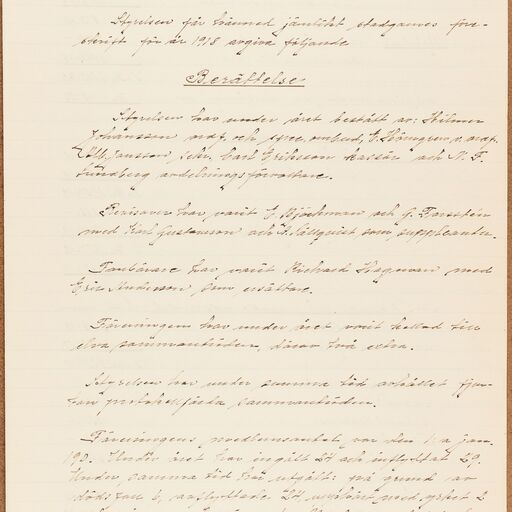 Styrelsen får härmed jämlikt stadgarnes före-
skrift för år 1918 avgiva följande
Berättelse
Styrelsen har under året bestått av: Hilmer
Johansson ordf. och spec. ombud, E. Höngren v. ordf.
Jansson, sekr. Carl Eriksson kassör och N. F.
Lundberg avdelningsförvaltare.
Revisorer har varit E. Björkman och G. Forsstén
med Karl Gustavsson och Sällquist som suppleanter.
Fanbärare har varit Richard Hageman med
Eric Andersson som ersättare.
Föreningen har under året varit kallad till
elva sammanträden, därav två extra.
Styrelsen har under samma tid avhållit fjor-
ton protokollförda sammanträden.
Föreningens medlemsantal var den 1:a jan.
Under året har ingått 24 och inflyttat 29.
Under samma tid har utgått: på grund av
dödsfall 6, avflyttade 24 med yrket 2